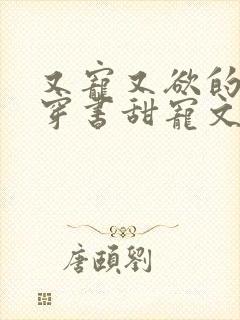 又寵又欲的
穿書甜寵文
唐頤劉